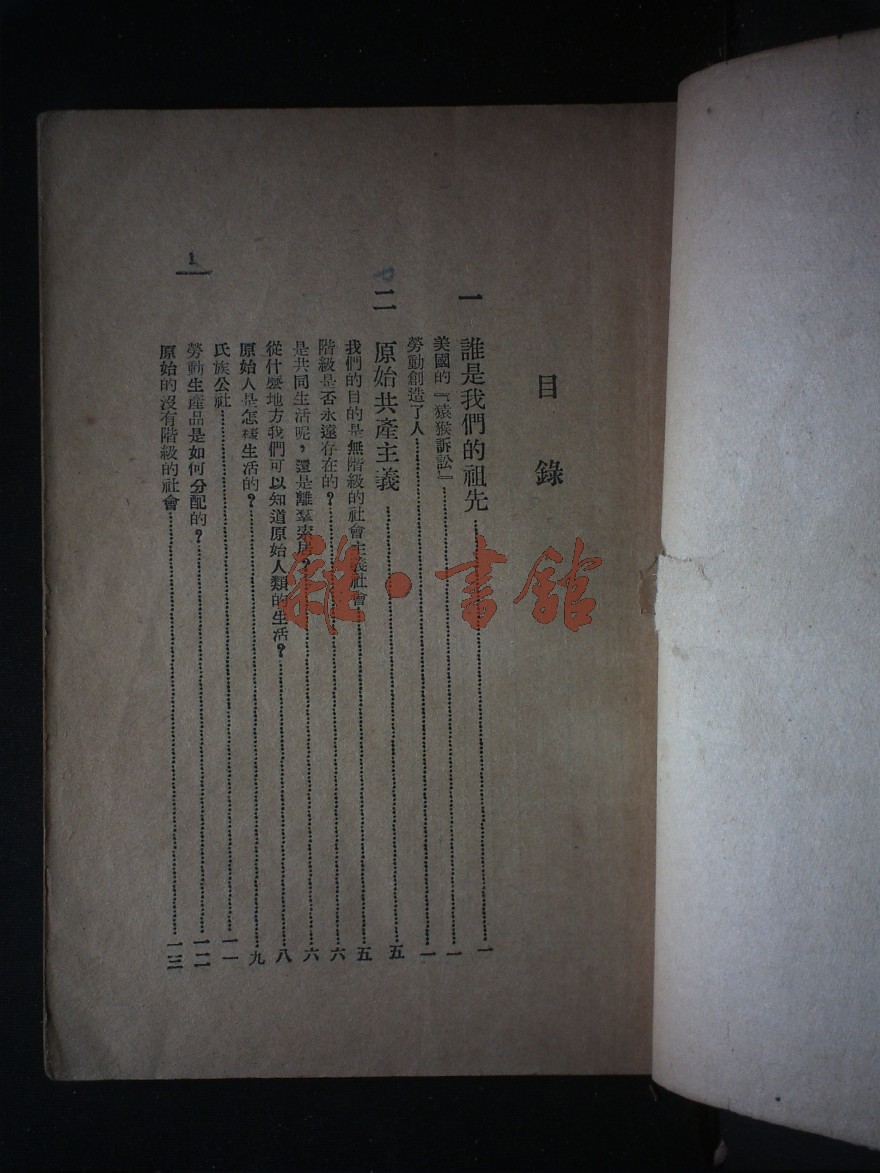 目錄
一 誰是我們的祖先……一
美國的『猿猴訴訟』……一
勞動創造了人……一
二 原始共產主義……五
我們的目的是無階級的社會主義社會……五
階級是否永遠存在的?……六
是共同生活呢,還是離羣索居?……六
從什麼地方我們可以知道原始人類的生活?……八
原始人是怎樣生活的?……九
氏族公社……一一
勞動生產品是如何分配的?……一二
原始的沒有階級的社會……一三
1
雜·書館